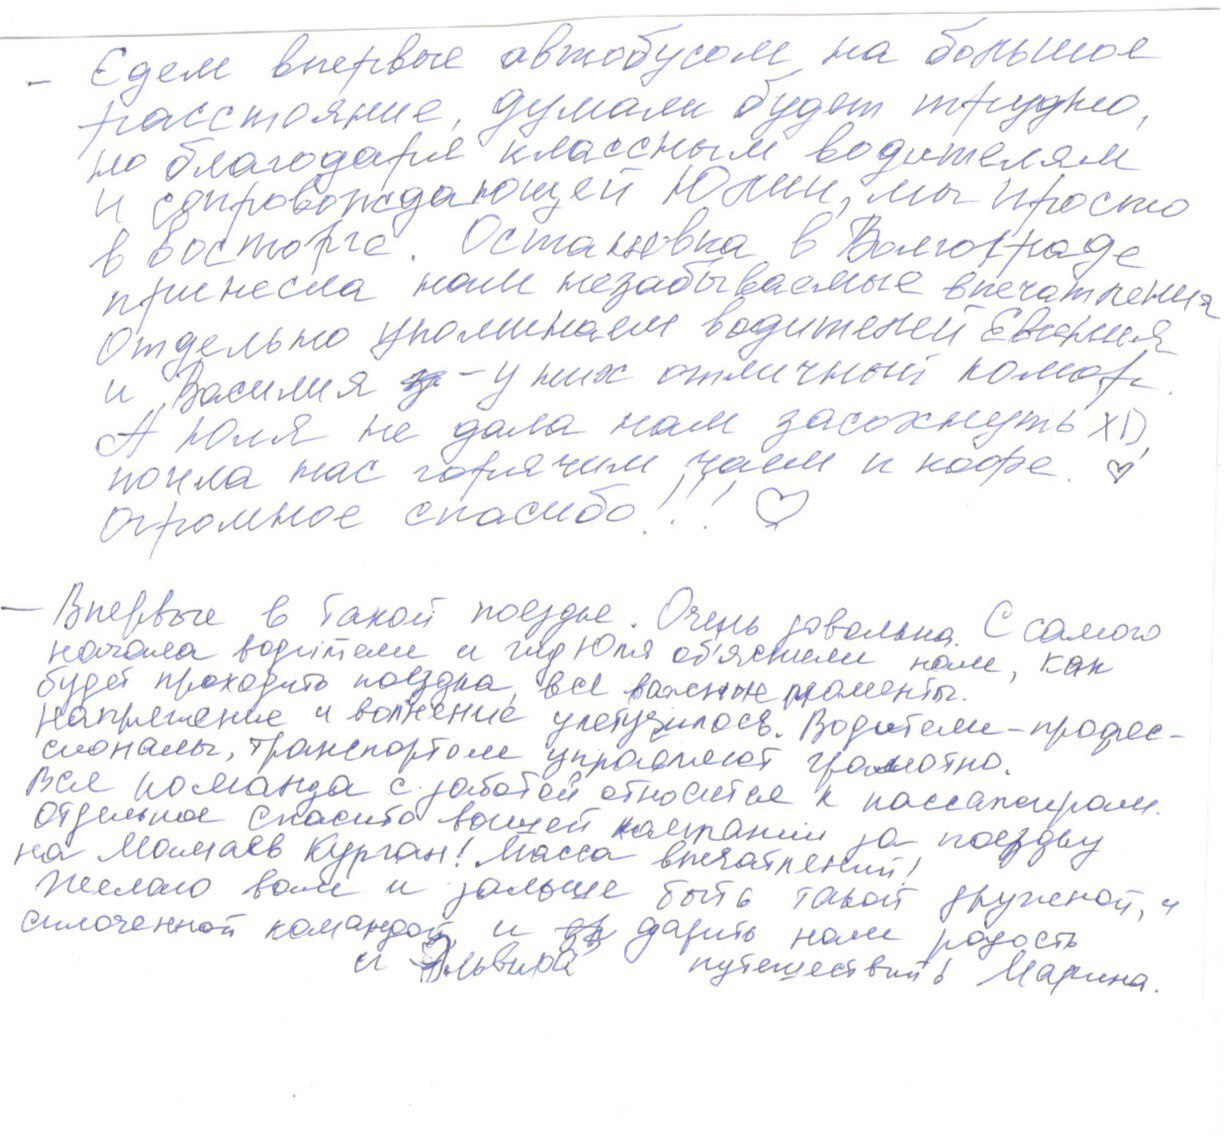 - Едем впервые автобусом на большое
расстояние, думали будет трудно,
но благодаря классным водителям
и сопровождающей Юлии, мы просто
в восторге. Остановка в Волгограде
принесла нам незабываемые впечатления
Отдельно упоминаем водителей Евгения
и Василия - у них отличный юмор.
А Юля не дала нам засохнуть XD,
поила нас горячим чаем и кофе. ♡
Огромное спасибо!!! ♡
- Впервые в такой поездке. Очень довольна. С самого
начала водители и гид Юля объяснили нам, как
будет проходить поездка, все важные моменты.
Напряжение и волнение улетучилось. Водители - профес-
сионалы, транспортом управляют грамотно.
Вся команда с заботой относится к пассажирам.
Отдельное спасибо вашей компании за поездку
на Мамаев Курган! Масса впечатлений!
Желаю вам и дальше быть такой дружной, и
сплоченной командой и дарить нам радость
и Эльвира путешествий Марина.